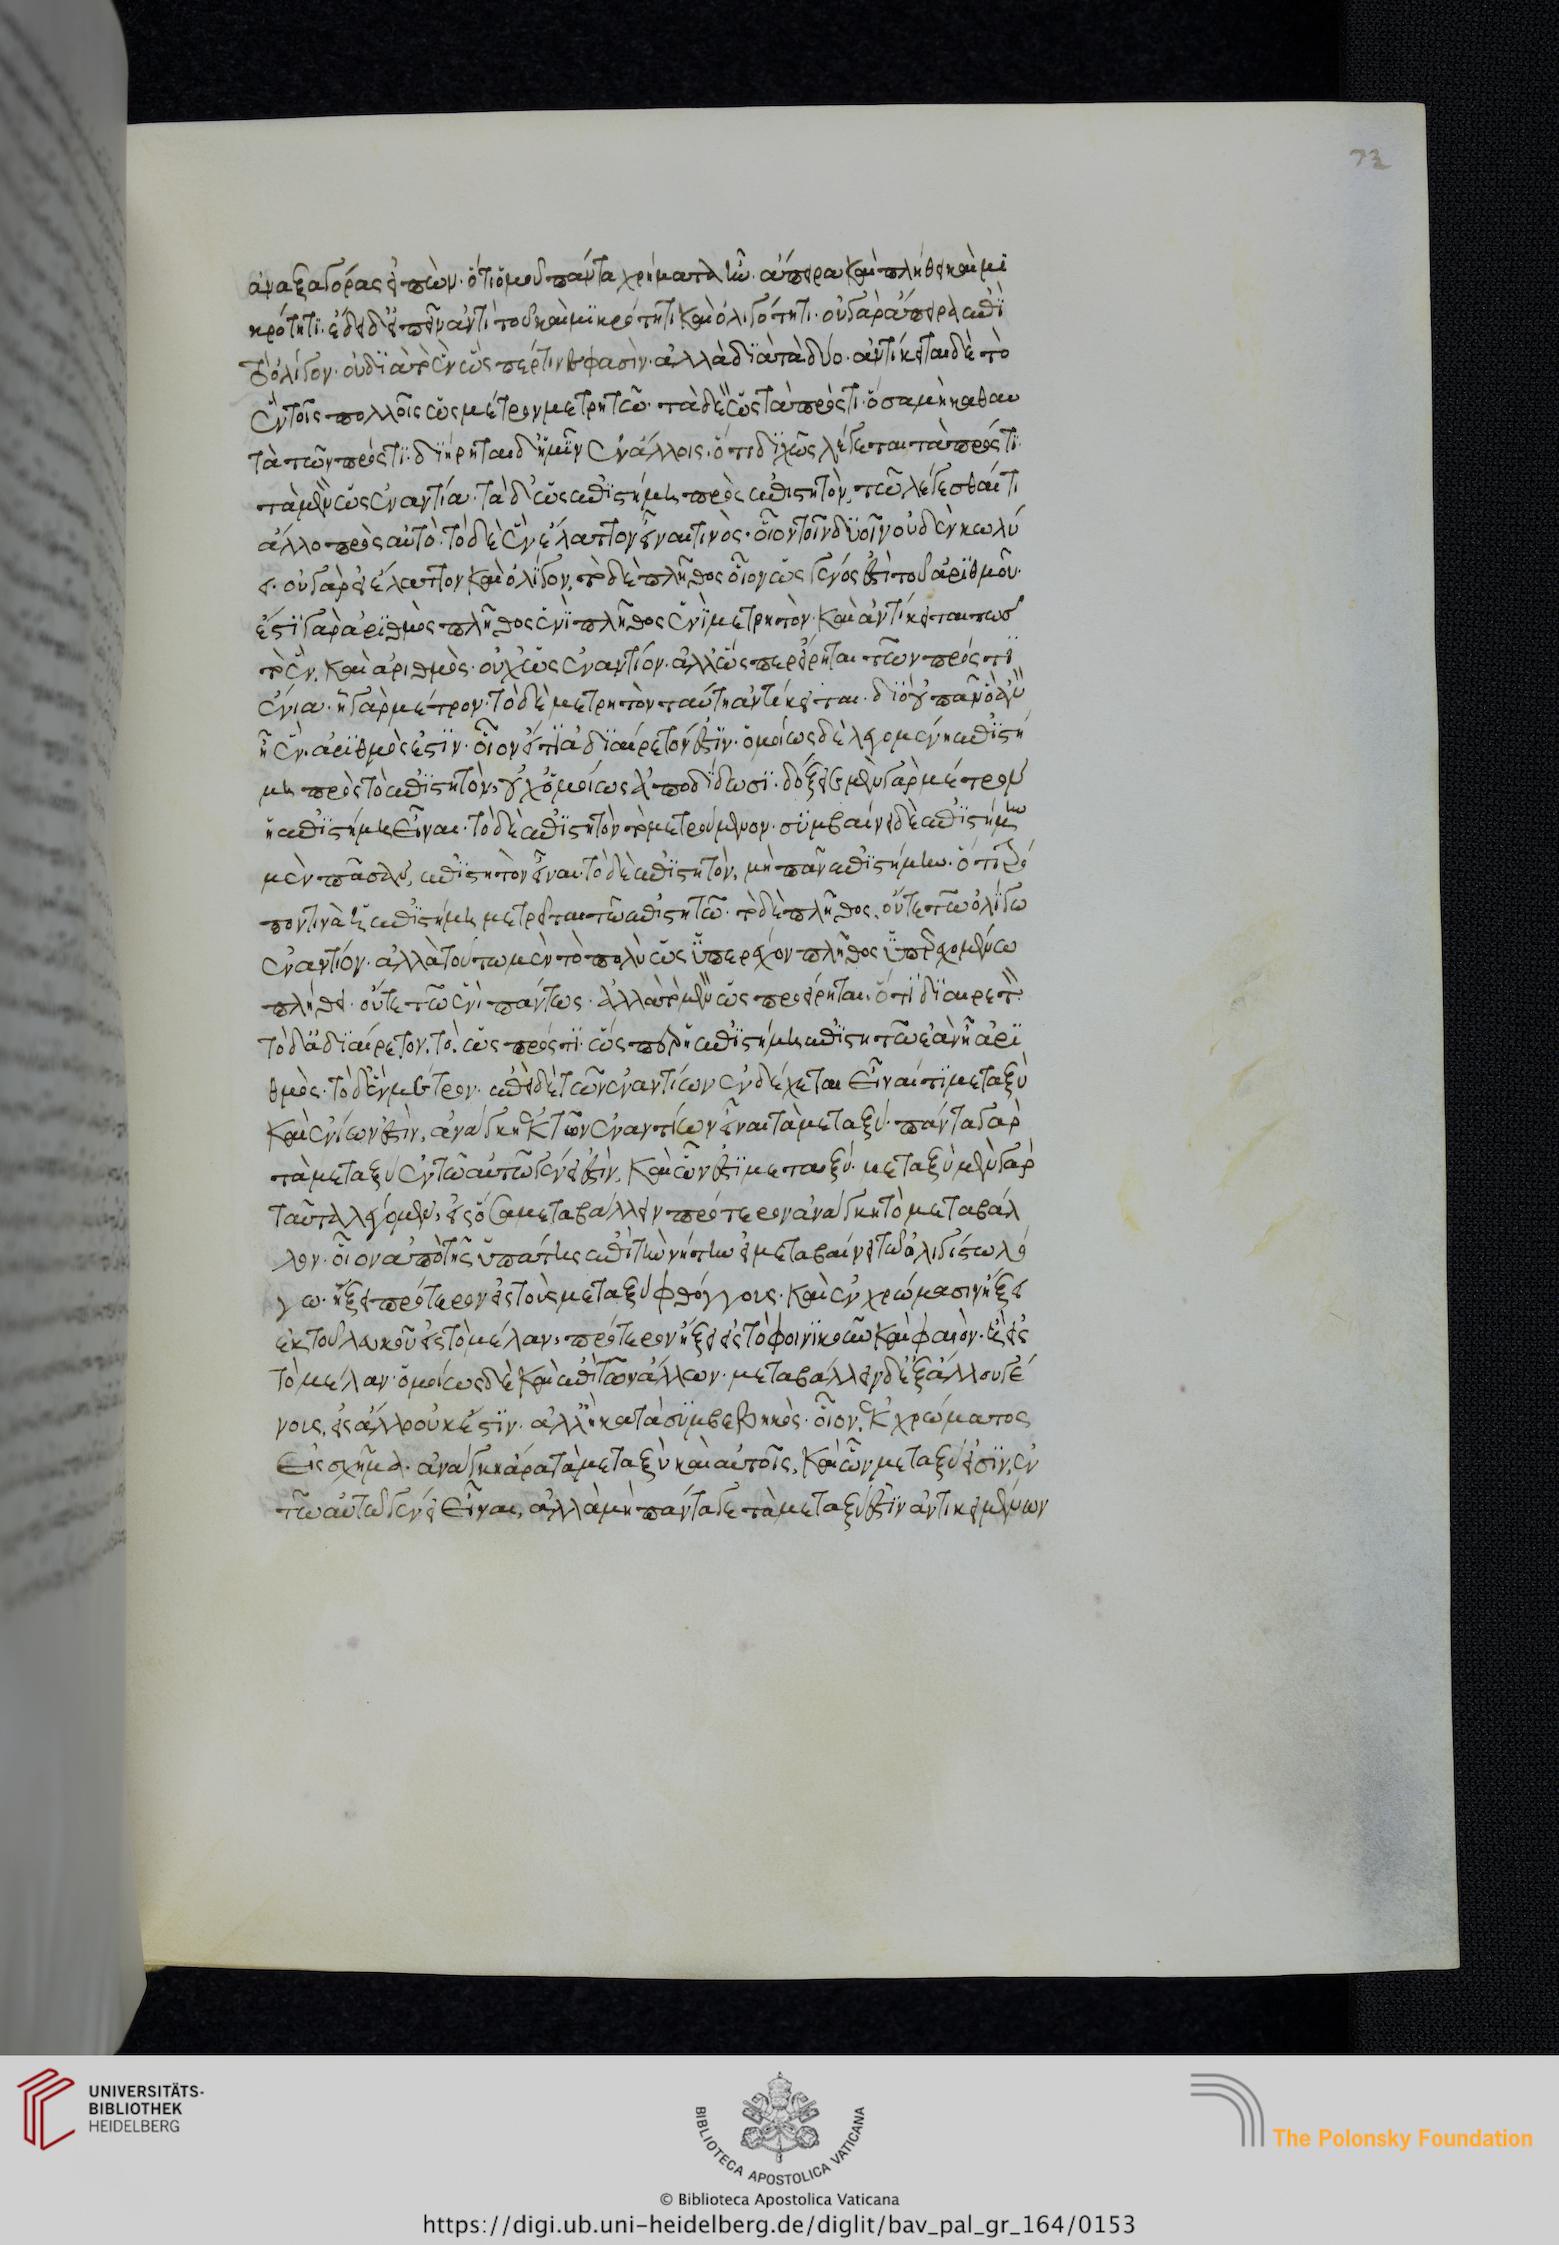 ἀναξαγόρας εἰπὼν· ὅτι ὁμοῦ πάντα χρήματα ἦν· ἄπειρα καὶ πλήθει καὶ μϊ
κρότητι· ἔδει δ' εἰπεῖν ἀντὶ τοῦ καὶ μϊκρότητι καὶ ὀλιγότητι· οὐ γὰρ ἄπειρα ἐπεὶ
τὸ ὀλίγον· οὐ διὰ τὸ ἓν ὥς περ τινές φασὶν· ἀλλὰ διὰ τὰ δύο· ἀντίκειται δὲ τὸ
ἓν τοῖς πολλοῖς ὡς μέτρον μετρητῶ· τὰ δὲ ὡς τὰ πρός τι· ὅσα μὴ καθ αυ
τὰ τῶν πρός τϊ· διήρηται δ' ἡμῖν ἐν ἄλλοις· ὅτι διχῶς λέγεται τὰ πρός τϊ·
τὰ μὲν ὡς ἐναντία· τὰ δ' ὡς ἐπιστήμη πρὸς ἐπιστητὸν, τῶ λέγεσθαί τι
ἄλλο πρὸς αὐτὸ· τὸ δὲ ἓν ἔλαττον εἶναι τινὸς· οἷον τοῖν δυοῖν οὐδὲν κωλύ
ει· οὐ γὰρ εἰ ἔλαττον καὶ ὀλίγον, τὸ δὲ πλῆθος οἷον ὡς γένός ἐστὶ τοῦ ἀρϊθμοῦ·
ἔστϊ γὰρ ἀρϊθμὸς πλῆθος ἑνὶ πλῆθος ἑνὶ μετρητὸν· καὶ ἀντίκειται πως
τὸ ἓν, καὶ ἀριθμὸς· οὐχ ὡς ἐναντίον· ἀλλ' ὥς περ εἴρηται τῶν πρός τϊ
ἔνια· ἧ γὰρ μέτρον· τὸ δὲ μετρητὸν ταύτη ἀντίκειται· διὸ οὐ πᾶν ὃ ἂν
ἦ ἓν· ἀρϊθμός ἐστϊν· οἷον εἴ τϊ ἀδιαίρετόν ἐστϊν· ὁμοίως δὲ λεγομένη ἐπιστή
μη πρὸς τὸ ἐπιστητὸν, οὐχ ὁμοίως ἀποδίδωσϊ· δόξειε μὲν γὰρ μέτρον
ἡ ἐπιστήμη εἶναι· τὸ δὲ ἐπιστητὸν τὸ μετρούμενον· συμβαίνει δὲ ἐπιστήμην
μὲν πᾶσαν, ἐπιστητὸν εἶναι· τὸ δὲ ἐπιστητὸν, μὴ πᾶν ἐπιστήμην· ὅτι τρό
πον τινὰ ἡ ἐπιστήμη μετρεῖται τῶ ἐπιστητῶ· τὸ δὲ πλῆθος, οὔτε τῶ ὀλίγω
ἐναντίον· ἀλλὰ τούτω μὲν τὸ πολὺ ὡς ὑπερέχον πλῆθος ὑπερεχομένω
πλήθει· οὔτε τῶ ἑνὶ πάντως· ἀλλὰ τὸ μὲν ὡς προείρηται, ὅτϊ διαιρετὸν·
τὸ δ' ἀδιαίρετον, τὸ, ὡς πρός τϊ· ὥς περ ἡ ἐπιστήμη ἐπιστητῶ ἐὰν ἦ ἀρϊ
θμὸς· τὸ δ' ἓν μέτρον· ἐπεὶ δὲ τῶν ἐναντίων ἐνδέχεται εἶναί τϊ μεταξὺ
καὶ ἐνίων ἐστὶν, ἀνάγκη ἐκ τῶν ἐναντίων εἶναι τὰ μεταξύ· πάντα γὰρ
τὰ μεταξὺ ἐν τῶ αὐτῶ γένει ἐστὶν, καὶ ὧν ἐστϊ μεταξύ· μεταξὺ μὲν γὰρ
ταῦτα λέγομεν, εἰς ὅσα μεταβάλλειν πρότερον ἀνάγκη τὸ μεταβάλ
λον· οἷον ἀπὸ τῆς ὑπάτης ἐπὶ τὴν νήτην εἰ μεταβαίνει τῶ ὀλιγίστω λό
γω· ἥξει πρότερον εἰς τοὺς μεταξὺ φθόγγους· καὶ ἐν χρώμασιν ἥξει
ἐκ τοῦ λευκοῦ εἰς τὸ μέλαν, πρότερον ἥξει εἰς τὸ φοινϊκοῦν καὶ φαιὸν· ἢ εἰς
τὸ μέλαν· ὁμοίως δὲ καὶ ἐπὶ τῶν ἄλλων· μεταβάλλειν δ' ἐξ ἄλλου γέ
νους, εἰς ἄλλο οὐκ ἔστϊν· ἀλλ' ἢ κατὰ συμβεβηκὸς· οἷον, ἐκ χρώματος
εἰς σχῆμα· ἀνάγκη ἄρα τὰ μεταξὺ καὶ αὑτοῖς, καὶ ὧν μεταξύ εἰσϊν, ἐν
τῶ αὐτῶ γένει εἶναι, ἀλλὰ μὴν πάντά γε τὰ μεταξύ ἐστϊν ἀντικειμένων
72
UNIVERSITÄTS-
BIBLIOTHEK
HEIDELBERG
BIBLIOTECA APOSTOLICA VATICANA
The Polonsky Foundation
© Biblioteca Apostolica Vaticana
https://digi.ub.uni-heidelberg.de/diglit/bav_pal_gr_164/0153